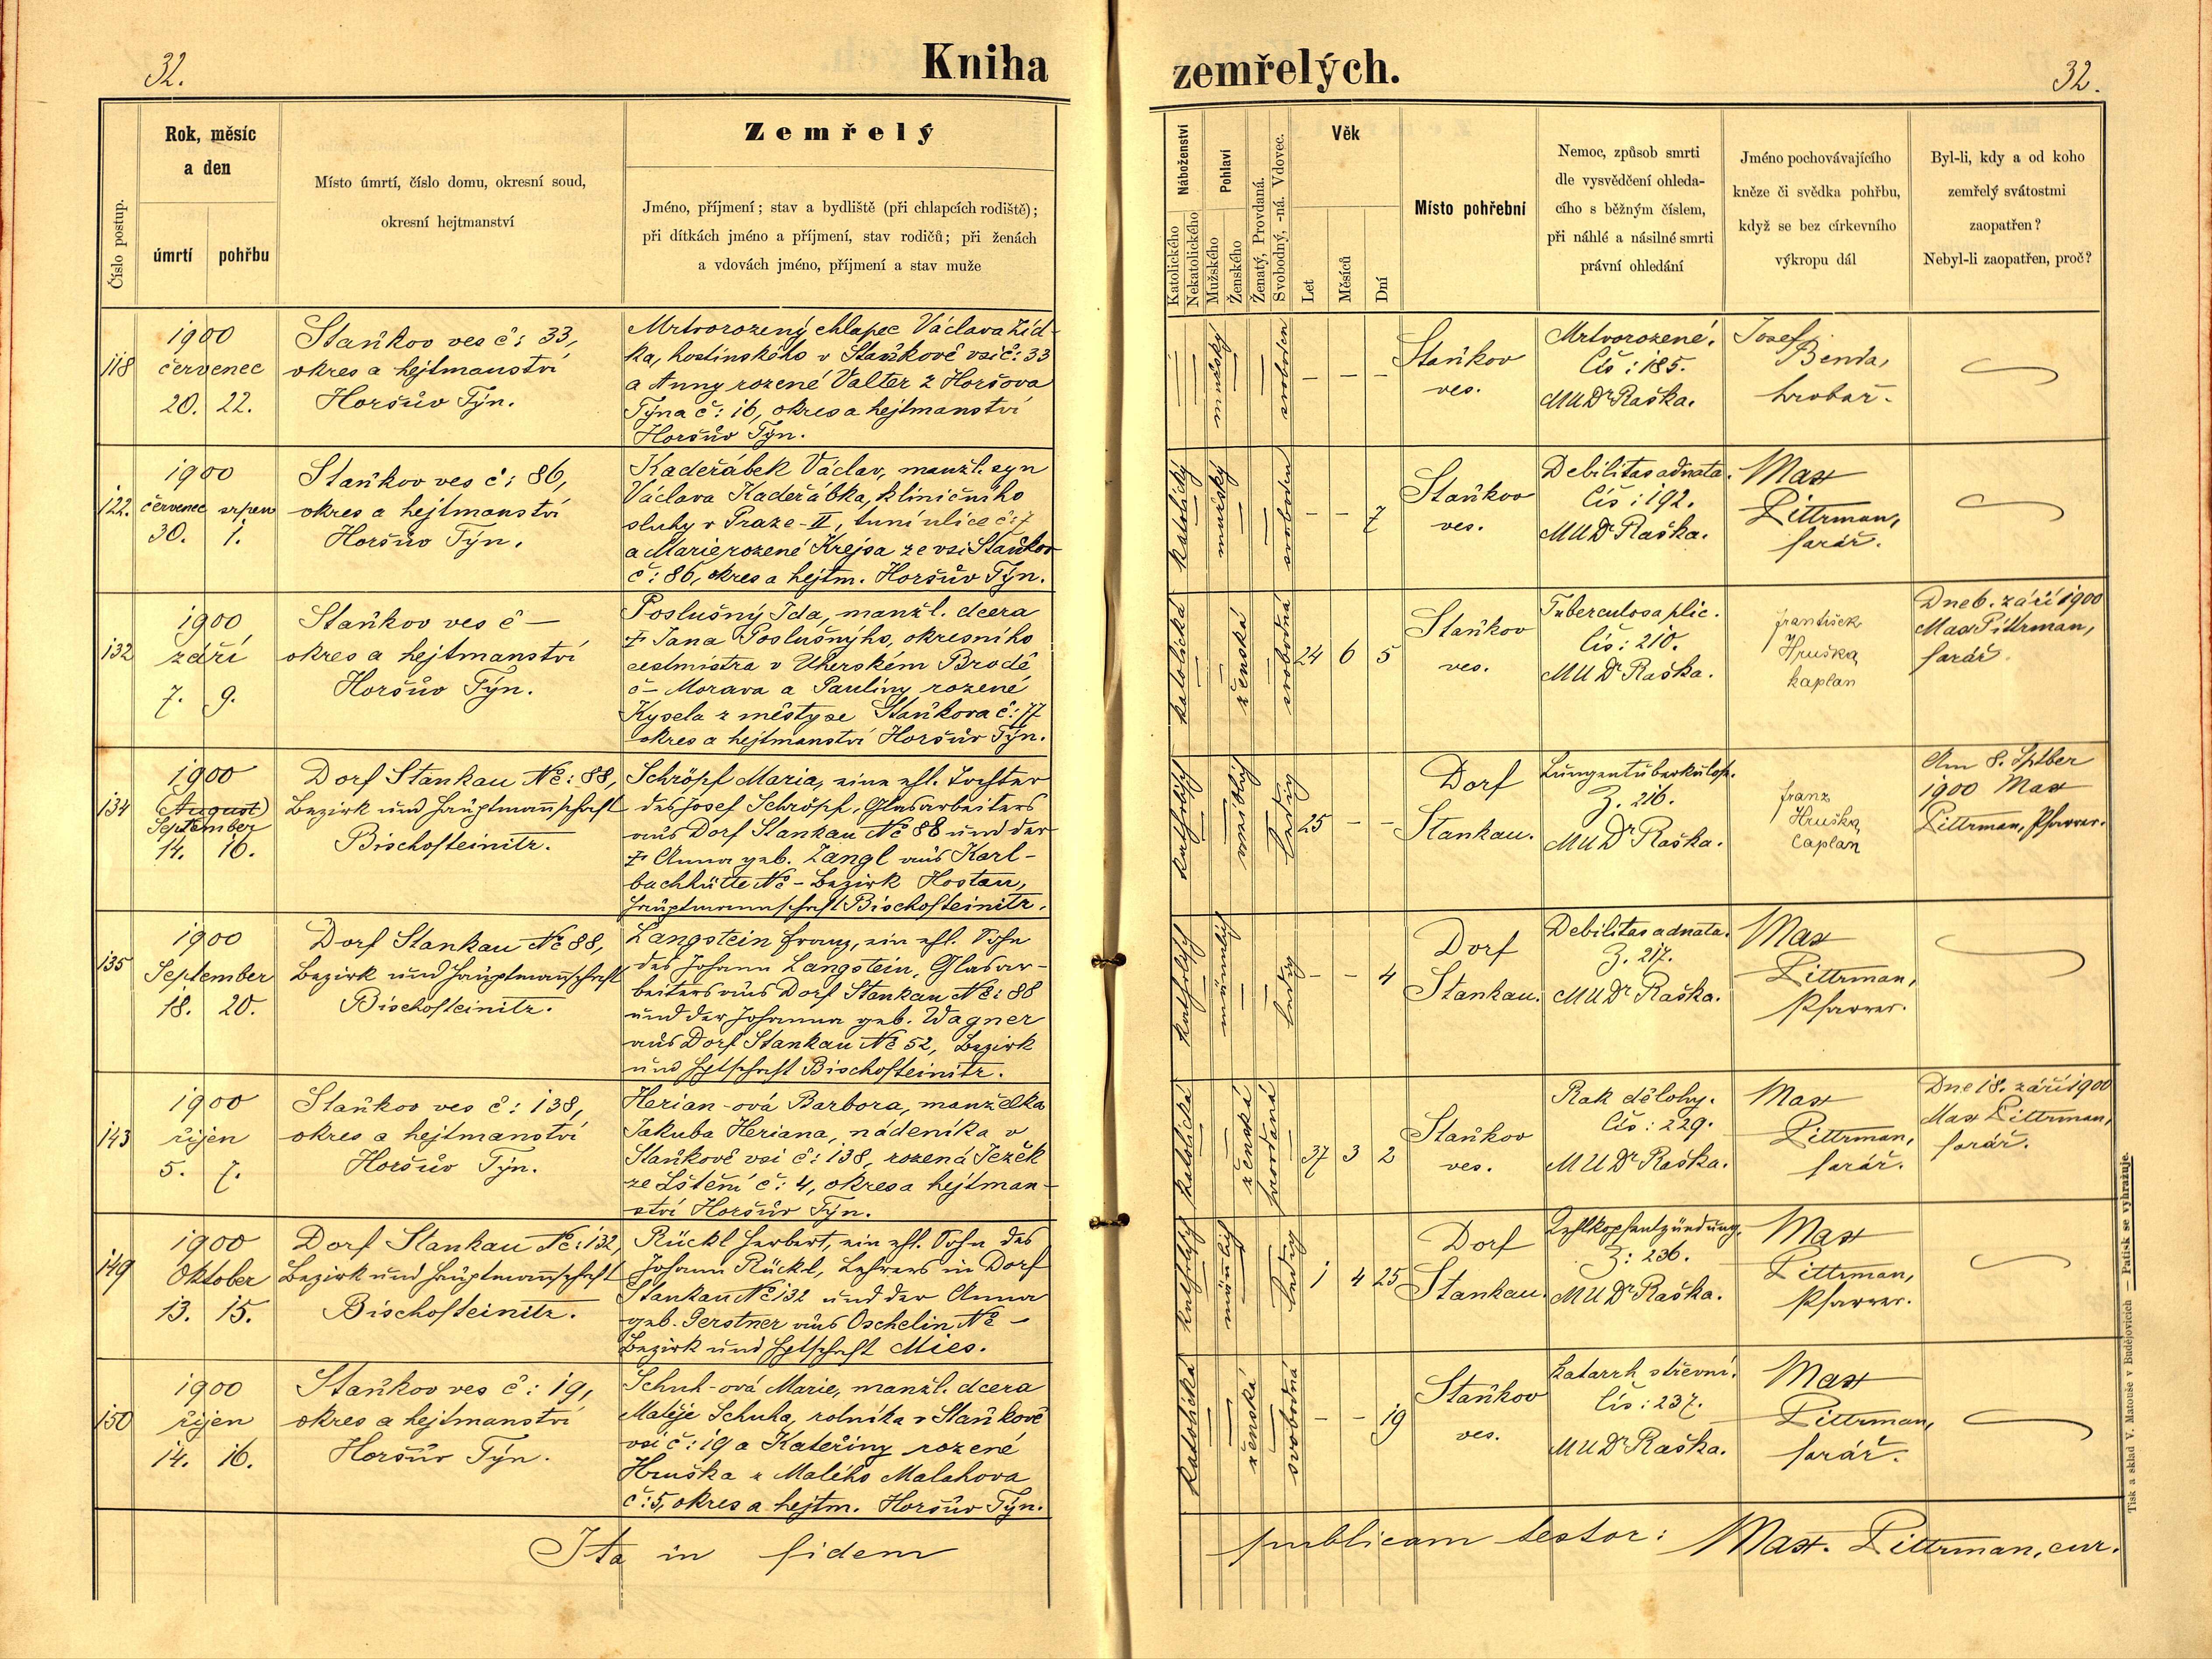 32.
Kniha zemřelých.
32.
Číslo postup.
Rok, měsíc
a den
úmrtí
pohřbu
Místo úmrtí, číslo domu, okresní soud,
okresní hejtmanství
Zemřelý
Jméno, příjmení; stav a bydliště (při chlapcích rodiště);
při dítkách jméno a příjmení, stav rodičů; při ženách
a vdovách jméno, příjmení a stav muže
Náboženství
Katolického
Nekatolického
Pohlaví
Mužského
Ženského
Ženatý, Provdaná.
Svobodný, -ná. Vdovec.
Věk
Let
Měsíců
Dní
Místo pohřební
Nemoc, způsob smrti
dle vysvědčení ohleda-
cího s běžným číslem,
při náhlé a násilné smrti
právní ohledání
Jméno pochovávajícího
kněze či svědka pohřbu,
když se bez církevního
výkropu dál
Byl-li, kdy a od koho
zemřelý svátostmi
zaopatřen?
Nebyl-li zaopatřen, proč?
118
1900
červenec
20. 22.
Staňkov ves č: 33,
okres a hejtmanství
Horšův Týn.
Mrtvorozený chlapec Václava Žíd-
ka, hostinského v Staňkově vsi č: 33
a Anny rozené Valter z Horšova
Týna č: 16, okres a hejtmanství
Horšův Týn.
mužský
svoboden
– – –
Staňkov
ves.
Mrtvorozené.
Čís: 185.
MUDr Raška.
Josef
Benda,
hrobař.
122.
1900
červenec srpen
30. 1.
Staňkov ves č: 86,
okres a hejtmanství
Horšův Týn.
Kadeřábek Václav, manžl. syn
Václava Kadeřábka, kliničního
sluhy v Praze-II, tuní ulice č: 7
a Marie rozené Krejsa ze vsi Staňkov
č: 86, okres a hejtm. Horšův Týn.
katolický
mužský
svoboden
– – 7
Staňkov
ves.
Debilitas adnata.
Čís: 192.
MUDr Raška.
Max
Pittrman,
farář.
132
1900
září
7. 9.
Staňkov ves č –
okres a hejtmanství
Horšův Týn.
Poslušný Ida, manžl. dcera
† Jana Poslušnýho, okresního
cestmistra v Uherském Brodě
č – Morava a Pauliny rozené
Kysela z městyse Staňkova č: 77
okres a hejtmanství Horšův Týn.
katolická
ženská
svobodná
24 6 5
Staňkov
ves.
Tuberculosa plic.
Čís: 210.
MUDr Raška.
František
Hruška
kaplan
Dne 6. září 1900
Max Pittrman,
farář.
134
1900
(August)
September
14. 16.
Dorf Stankau No: 88,
Bezirk und Hauptmannschaft
Bischofteinitz.
Schröpf Maria, eine ehl. Tochter
des Josef Schröpf, Glasarbeiters
aus Dorf Stankau No 88 und der
† Anna geb. Zangl aus Karl-
bachhütte No – Bezirk Hostau,
Hauptmannschaft Bischofteinitz.
katholisch
weiblich
ledig
25 – –
Dorf
Stankau.
Lungentuberkulose.
Z. 216.
MUDr Raška.
Franz
Hruška
Caplan
Am 8. Sptber
1900 Max
Pittrman, Pfarrer.
135
1900
September
18. 20.
Dorf Stankau No 88,
Bezirk und Hauptmannschaft
Bischofteinitz.
Langstein Franz, ein ehl. Sohn
des Johann Langstein, Glasar-
beiters aus Dorf Stankau No: 88
und der Johanna geb. Wagner
aus Dorf Stankau No 52, Bezirk
und Hptschaft Bischofteinitz.
katholisch
männlich
ledig
– – 4
Dorf
Stankau.
Debilitas adnata.
Z. 217.
MUDr Raška.
Max
Pittrman,
Pfarrer.
143
1900
říjen
5. 7.
Staňkov ves č: 138,
okres a hejtmanství
Horšův Týn.
Herian-ová Barbora, manželka
Jakuba Heriana, nádeníka v
Staňkově vsi č: 138, rozená Ježek
ze Lštění č: 4, okres a hejtman-
ství Horšův Týn.
katolická
ženská
provdaná
37 3 2
Staňkov
ves.
Rak dělohy.
Čís: 229.
MUDr Raška.
Max
Pittrman,
farář.
Dne 18. září 1900
Max Pittrman,
farář.
149
1900
Oktober
13. 15.
Dorf Stankau No: 132,
Bezirk und Hauptmannschaft
Bischofteinitz.
Rückl Herbert, ein ehl. Sohn des
Johann Rückl, Lehrers in Dorf
Stankau No 132 und der Anna
geb. Gerstner aus Oschelin No –
Bezirk und Hptschaft Mies.
katholisch
männlich
ledig
1 4 25
Dorf
Stankau.
Kehlkopfentzündung.
Z: 236.
MUDr Raška.
Max
Pittrman,
Pfarrer.
150
1900
říjen
14. 16.
Staňkov ves č: 19,
okres a hejtmanství
Horšův Týn.
Schuh-ová Marie, manžl. dcera
Matěje Schuha, rolníka v Staňkově
vsi č: 19 a Kateřiny rozené
Hruška z Malého Malahova
č: 5, okres a hejtm. Horšův Týn.
katolická
ženská
svobodná
– – 19
Staňkov
ves.
Katarrh střevní.
Čís: 237.
MUDr Raška.
Max
Pittrman,
farář.
Ita in fidem publicam testor: Max. Pittrman, cur.
Tisk a sklad V. Matouše v Budějovicích — Patisk se vyhražuje.